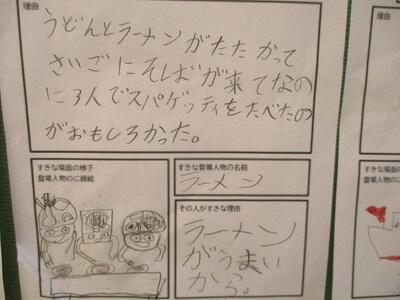 理由
うどんとラーメンがたたかって
さいごにそばが来てなの
に3人でスパゲッティをたべたの
がおもしろかった。
すきな場面の様子
登場人物のに顔絵
すきな登場人物の名前
ラーメン
その人がすきな理由
ラーメン
がうまい
から。
理由
すきな場
登場人物